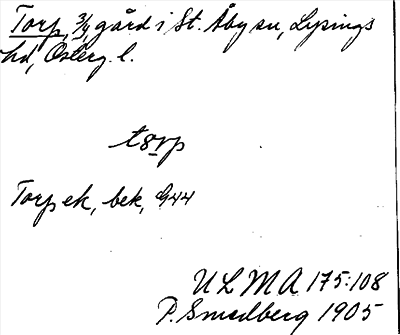 Torp, 3/4 gård i St. Åby sn, Lysings
hd, Österg. l.
tɷrp
Torp ek, bek, G44
ULMA 175:108
P. Smedberg 1905